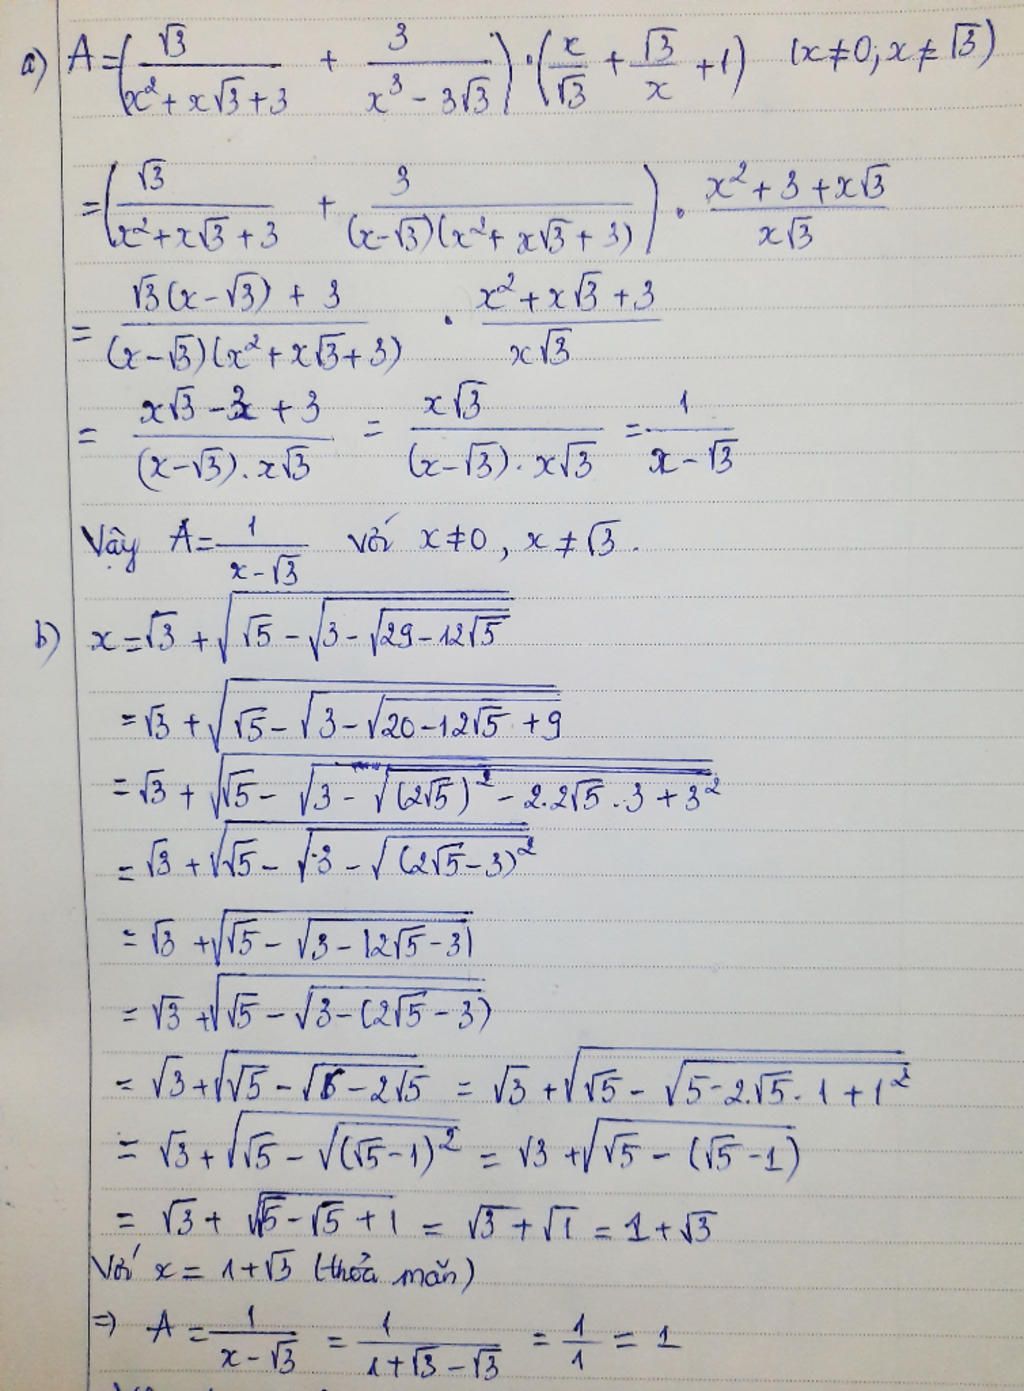 a) A = (√3/(x² + x√3 + 3) + 3/(x³ - 3√3)) · (x/√3 + √3/x + 1) (x ≠ 0; x ≠ √3)
= (√3/(x² + x√3 + 3) + 3/((x-√3)(x² + x√3 + 3))) · (x² + 3 + x√3)/(x√3)
= (√3(x-√3) + 3)/((x-√3)(x² + x√3 + 3)) · (x² + x√3 + 3)/(x√3)
= (x√3 - 3 + 3)/((x-√3).x√3) = x√3/((x-√3).x√3) = 1/(x-√3)
Vậy A = 1/(x-√3) với x ≠ 0, x ≠ √3.
b) x = √3 + √(√5 - √(3 - √(29 - 12√5)))
= √3 + √(√5 - √(3 - √(20 - 12√5 + 9)))
= √3 + √(√5 - √(3 - √((2√5)² - 2.2√5.3 + 3²)))
= √3 + √(√5 - √(3 - √((2√5 - 3)²)))
= √3 + √(√5 - √(3 - |2√5 - 3|))
= √3 + √(√5 - √(3 - (2√5 - 3)))
= √3 + √(√5 - √(6 - 2√5)) = √3 + √(√5 - √(5 - 2.√5.1 + 1²))
= √3 + √(√5 - √((√5 - 1)²)) = √3 + √(√5 - (√5 - 1))
= √3 + √(√5 - √5 + 1) = √3 + √1 = 1 + √3
Với x = 1 + √3 (thỏa mãn)
⇒ A = 1/(x-√3) = 1/(1+√3-√3) = 1/1 = 1